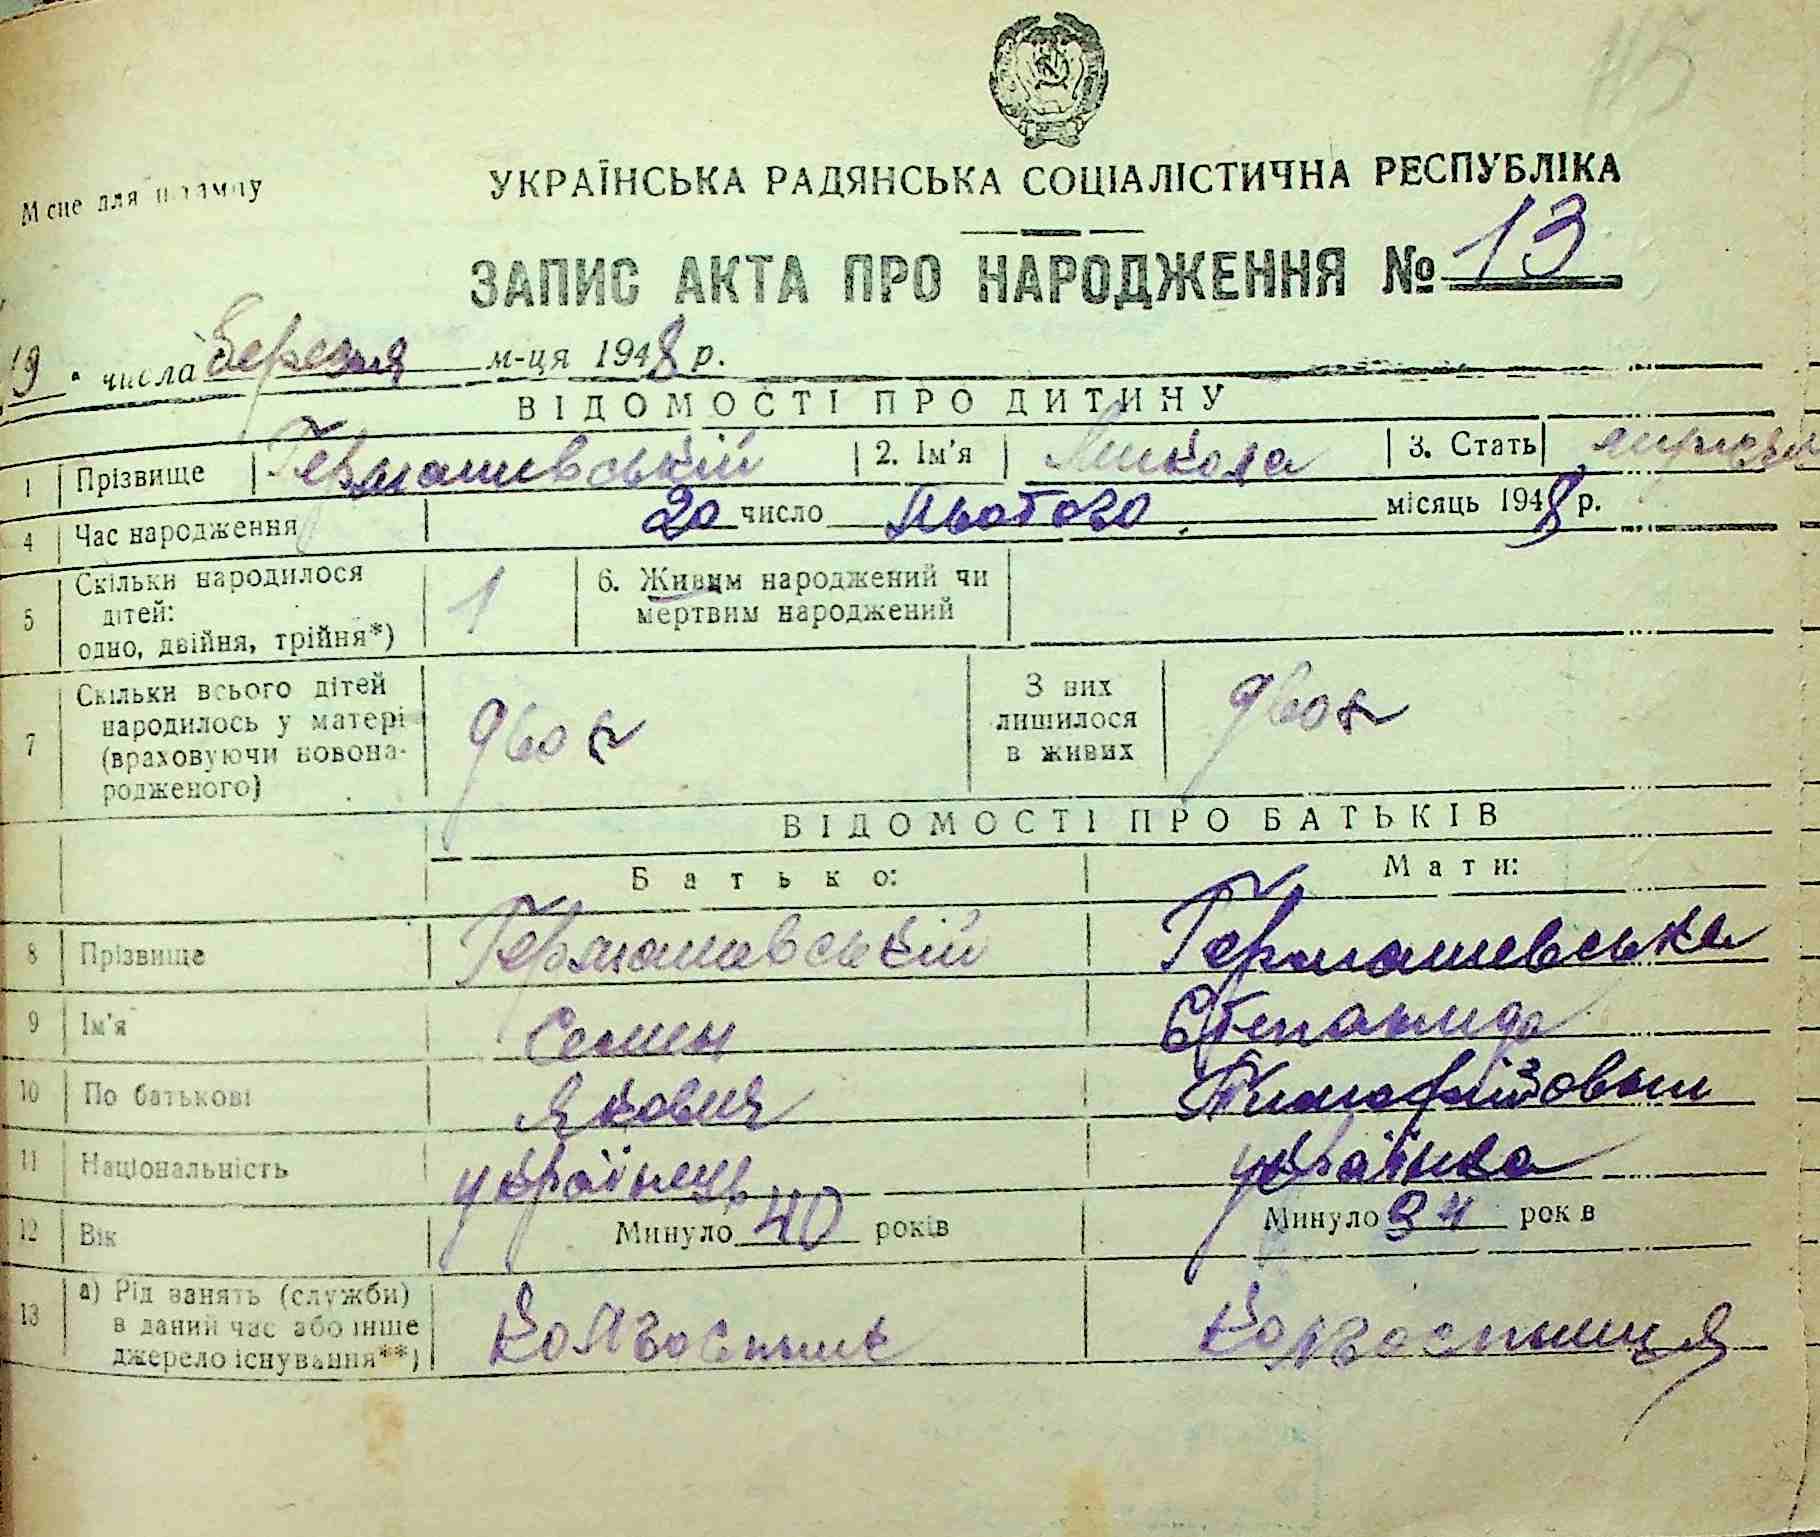 115
УКРАЇНСЬКА РАДЯНСЬКА СОЦІАЛІСТИЧНА РЕСПУБЛІКА
Місце для штампу
ЗАПИС АКТА ПРО НАРОДЖЕННЯ № 13
19 числа березня м-ця 1948 р.
ВІДОМОСТІ ПРО ДИТИНУ
1 Прізвище Гермашевський 2. Ім'я Микола 3. Стать
4 Час народження 20 число Лютого місяць 1948 р.
5 Скільки народилося дітей: одно, двійня, трійня*) 1 6. Живим народжений чи мертвим народжений
7 Скільки всього дітей народилось у матері (враховуючи новонародженого) двох З них лишилося в живих двох
ВІДОМОСТІ ПРО БАТЬКІВ
Батько: Мати:
8 Прізвище Гермашевський Гермашевська
9 Ім'я Семен Степанида
10 По батькові Якович
11 Національність українець українка
12 Вік Минуло 40 років Минуло 34 років
13 а) Рід занять (служби) в даний час або інше джерело існування**) Колгоспник Колгоспниця